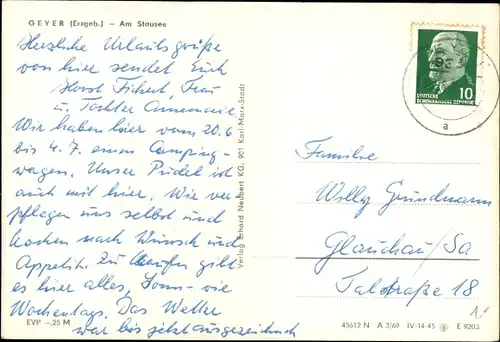 GEYER (Erzgeb.) – Am Stausee
Herzliche Urlaubsgrüße
von hier sendet Euch
Horst Fichert, Frau
u. Tochter Annemarie.
Wir haben hier vom 20.6
bis 4.7. einen Camping-
wagen. Unser Pudel ist
auch mit hier. Wir ver-
pflegen uns selbst und
kochen nach Wunsch und
Appetit. Zu kaufen gibt
es hier alles, Sonn- wie
Wochentags. Das Wetter
war bis jetzt ausgezeichnet
EVP –,25 M
Verlag Erhard Neubert KG, 901 Karl-Marx-Stadt
10
DEUTSCHE
DEMOKRATISCHE REPUBLIK
a
Familie
Willy Grundmann
Glauchau/Sa
Talstraße 18
45612 N A 3/69 IV-14-45 E 9203